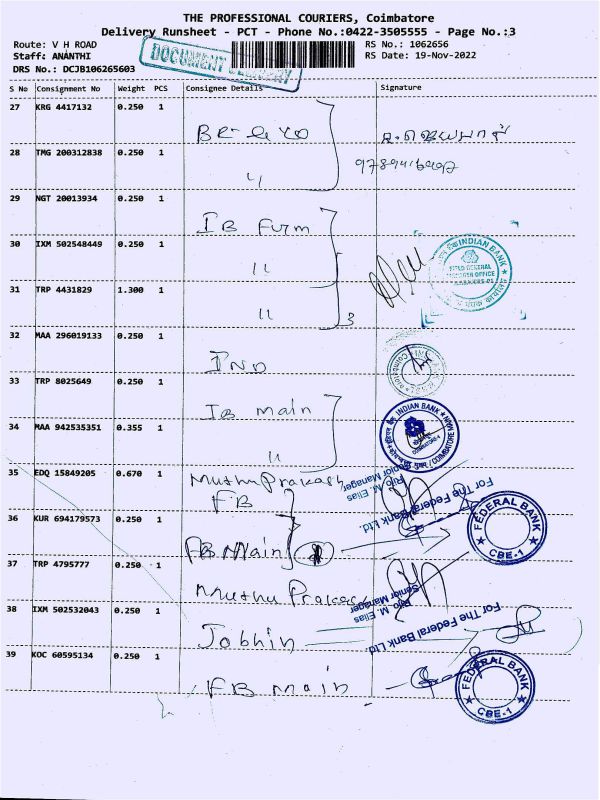 THE PROFESSIONAL COURIERS, Coimbatore
Delivery Runsheet - PCT - Phone No.:0422-3505555 - Page No.:3
Route: V H ROAD
RS No.: 1062656
Staff: ANANTHI
RS Date: 19-Nov-2022
DRS No.: DCJB106265603
DOCUMENT DELIVERY
S No Consignment No Weight PCS Consignee Details Signature
27 KRG 4417132 0.250 1
28 TMG 200312838 0.250 1
29 NGT 20013934 0.250 1
IB Furm
30 IXM 502548449 0.250 1
INDIAN BANK
31 TRP 4431829 1.300 1
3
32 MAA 296019133 0.250 1
IND
33 TRP 8025649 0.250 1
IB main
34 MAA 942535351 0.355 1
INDIAN BANK
35 EDQ 15849205 0.670 1
Muthu Prakash
FB
For The Federal Bank Ltd.
Rijo M. Elias
Senior Manager
36 KUR 694179573 0.250 1
FB Main
FEDERAL BANK
CBE-1
37 TRP 4795777 0.250 1
Muthu Prakash
38 IXM 502532043 0.250 1
Jobhin
For The Federal Bank Ltd.
Rijo M. Elias
Senior Manager
39 KOC 60595134 0.250 1
FB main
FEDERAL BANK
CBE-1